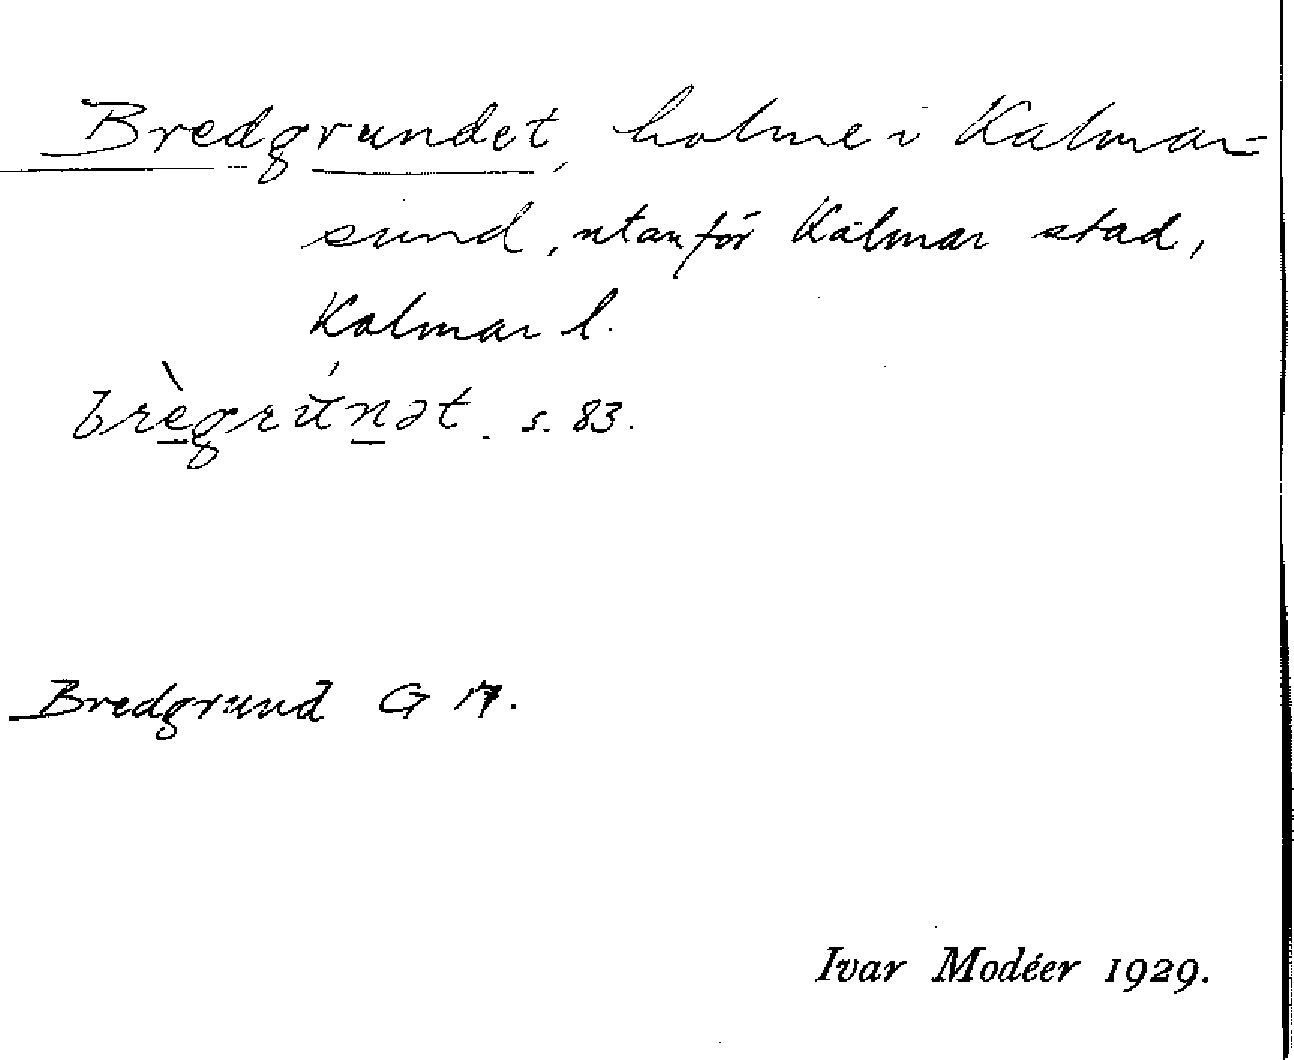 Bredgrundet, holme i Kalmar=
sund, utanför Kalmar stad,
Kalmar l.
brè̱grún̲ət. s. 83.
Bredgrund G 17.
Ivar Modéer 1929.